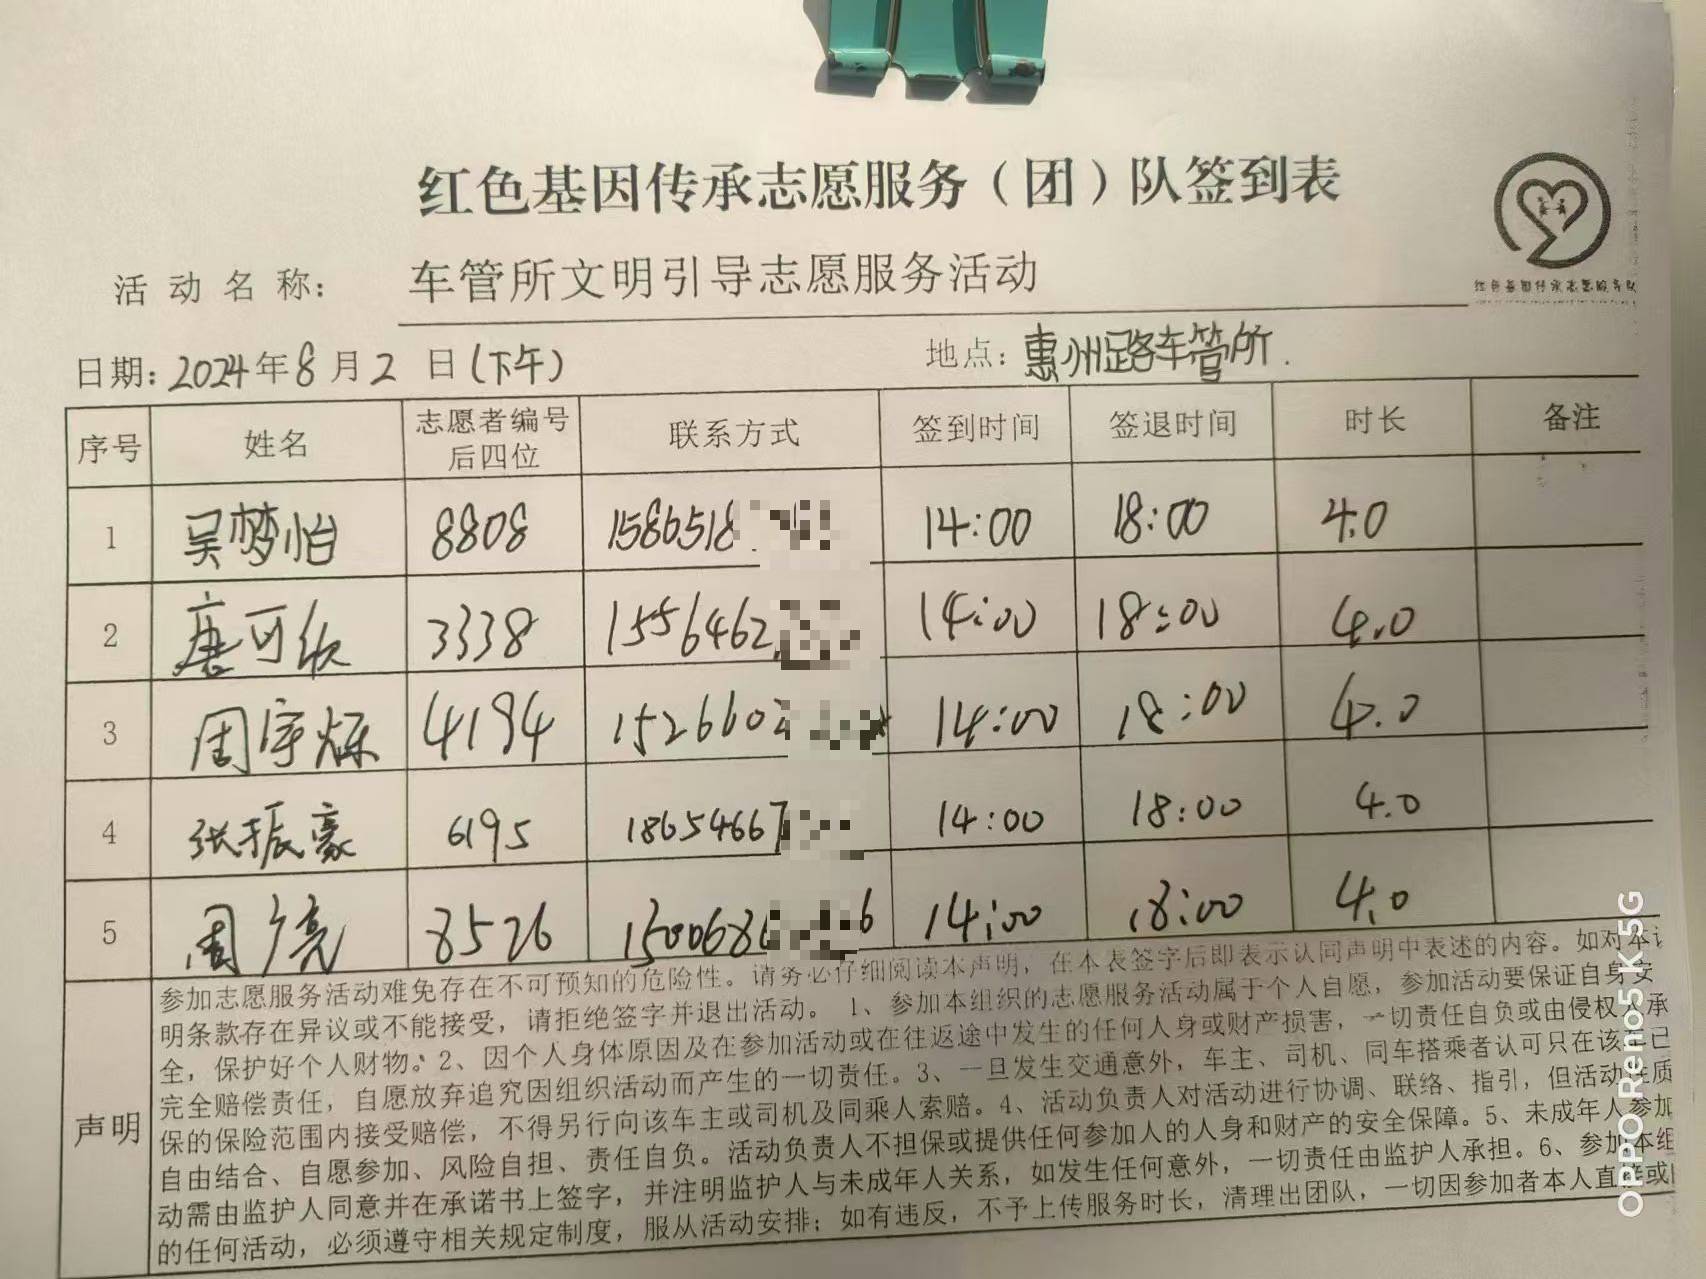 红色基因传承志愿服务（团）队签到表
红色基因传承志愿服务队
活动名称： 车管所文明引导志愿服务活动
日期：2024年8月2日（下午） 地点：惠州路车管所.
序号 姓名 志愿者编号后四位 联系方式 签到时间 签退时间 时长 备注
1 吴梦怡 8808 1586518 14:00 18:00 4.0
2 唐可欣 3338 1556462 14:00 18:00 4.0
3 周宇烁 4194 1526602 14:00 18:00 4.0
4 张振豪 6195 18654667 14:00 18:00 4.0
5 周亮 8526 1500686 6 14:00 18:00 4.0
声明
参加志愿服务活动难免存在不可预知的危险性。请务必仔细阅读本声明，在本表签字后即表示认同声明中表述的内容。如对本
明条款存在异议或不能接受，请拒绝签字并退出活动。 1、参加本组织的志愿服务活动属于个人自愿，参加活动要保证自身安
全，保护好个人财物。2、因个人身体原因及在参加活动或在往返途中发生的任何人身或财产损害，一切责任自负或由侵权人承
完全赔偿责任，自愿放弃追究因组织活动而产生的一切责任。3、一旦发生交通意外，车主、司机、同车搭乘者认可只在该车已
保的保险范围内接受赔偿，不得另行向该车主或司机及同乘人索赔。4、活动负责人对活动进行协调、联络、指引，但活动性质
自由结合、自愿参加、风险自担、责任自负。活动负责人不担保或提供任何参加人的人身和财产的安全保障。5、未成年人参加
动需由监护人同意并在承诺书上签字，并注明监护人与未成年人关系，如发生任何意外，一切责任由监护人承担。6、参加本组
的任何活动，必须遵守相关规定制度，服从活动安排；如有违反，不予上传服务时长，清理出团队，一切因参加者本人直接或
OPPO Reno5 K 5G